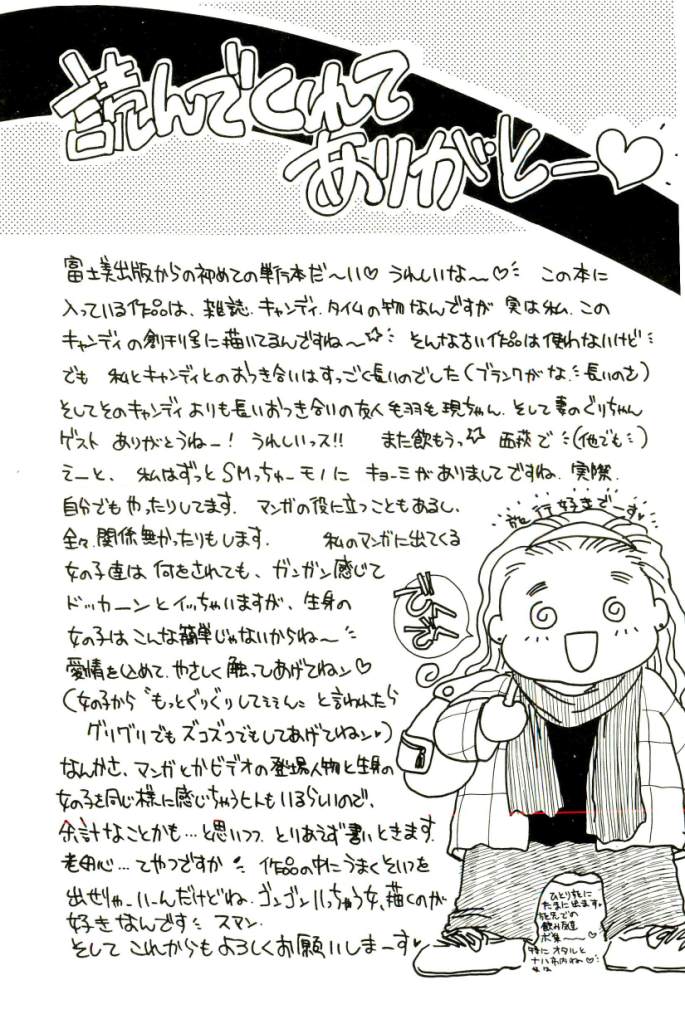 読んでくれて
ありがとー♡
富士美出版からの初めての単行本だ〜い♡ うれしいな〜♡ この本に
入っている作品は、雑誌.キャンディ.タイムの物なんですが 実は私.この
キャンディの創刊号に描いてるんですね〜☆ そんな古い作品は使わないけど
でも 私とキャンディとのおつき合いはすっごく長いのでした(ブランクがな.長いのさ)
そしてそのキャンディよりも長いおつき合いの友人 毛羽毛現ちゃん.そして妻のぐりちゃん
ゲスト ありがとうねー! うれしいっス!! また飲もうっ☆ 西荻で(他でも)
えーと、私はずっとSMっちゅーモノに キョーミがありましてですね.実際.
自分でもやったりしてます. マンガの役に立つこともあるし、
全々.関係無かったりもします. 私のマンガに出てくる
女の子達は 何をされても、ガンガン感じて
ドッカーンとイッちゃいますが、生身の
女の子はこんな簡単じゃないからね〜
愛情を込めて.やさしく触ってあげてねン♡
(女の子から〝もっとぐりぐりしてぇぇん〟と言われたら
グリグリでもズコズコでもしてあげてねン♡)
なんかさ、マンガとかビデオの登場人物と生身の
女の子を同じ様に感じちゃうヒトもいるらしいので、
余計なことかも…と思いつつ とりあえず書いときます.
老用心…てやつですか 作品の中にうまくそいつを
出せりゃーいーんだけどね.ゴンゴンいっちゃう女、描くのが
好きなんです スマン.
そして これからもよろしくお願いしまーす♥
旅行好きでーす♥
ひとり旅に
たまに出ます。
旅先での
飲み友達
ボ集〜〜♡
特に オタルと
ナハ